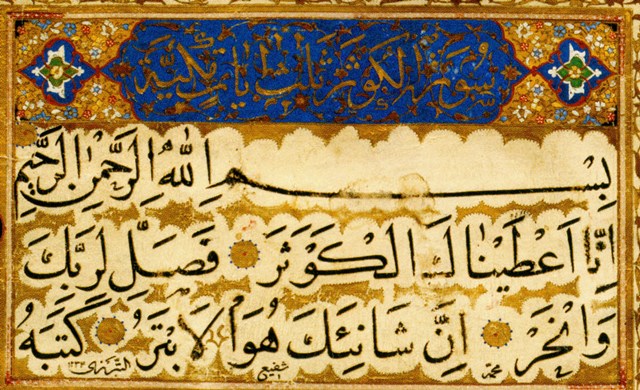 سورة الكوثر ثلث ايات مكية
بسم الله الرحمن الرحيم
انا اعطيناك الكوثر فصل لربك
وانحر ان شانئك هو الابتر كتبه
محمد شفيع التبريزي